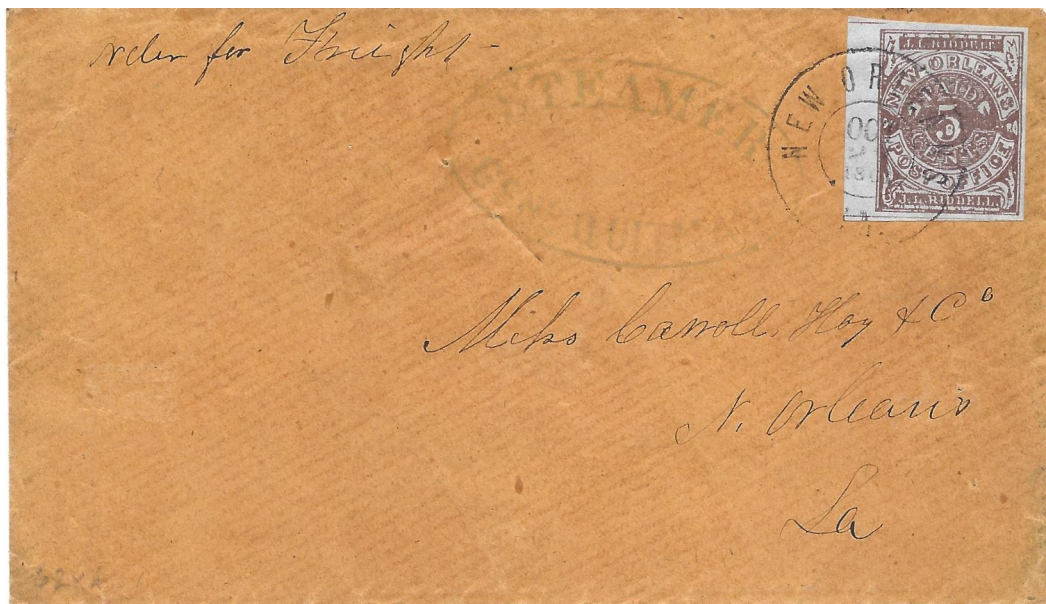 rder for Freight -
STEAMER
QUIT
NEW OR
LA.
J.L. RIDDELL
NEW-ORLEANS
PAID
5
CENTS
POST OFFICE
J.L. RIDDELL.
Carroll, Hoy & Co
N. Orleans
La